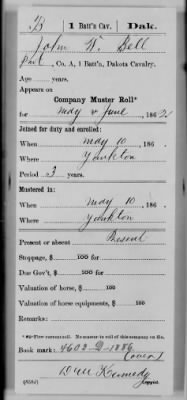 B | 1 Batt'n Cav. | Dak.
John W. Bell
Pvt, Co. A, 1 Batt'n, Dakota Cavalry.
Age years.
Appears on
Company Muster Roll*
for May & June, 1862.
Joined for duty and enrolled:
When May 10, 186 .
Where Yankton
Period 3 years.
Mustered in:
When May 10, 186 .
Where Yankton
Present or absent Present
Stoppage, $ 100 for
Due Gov't, $ 100 for
Valuation of horse, $ 100
Valuation of horse equipments, $ 100
Remarks:
Book mark: 4602-D-1886
(over)
Kennedy
Copyist.